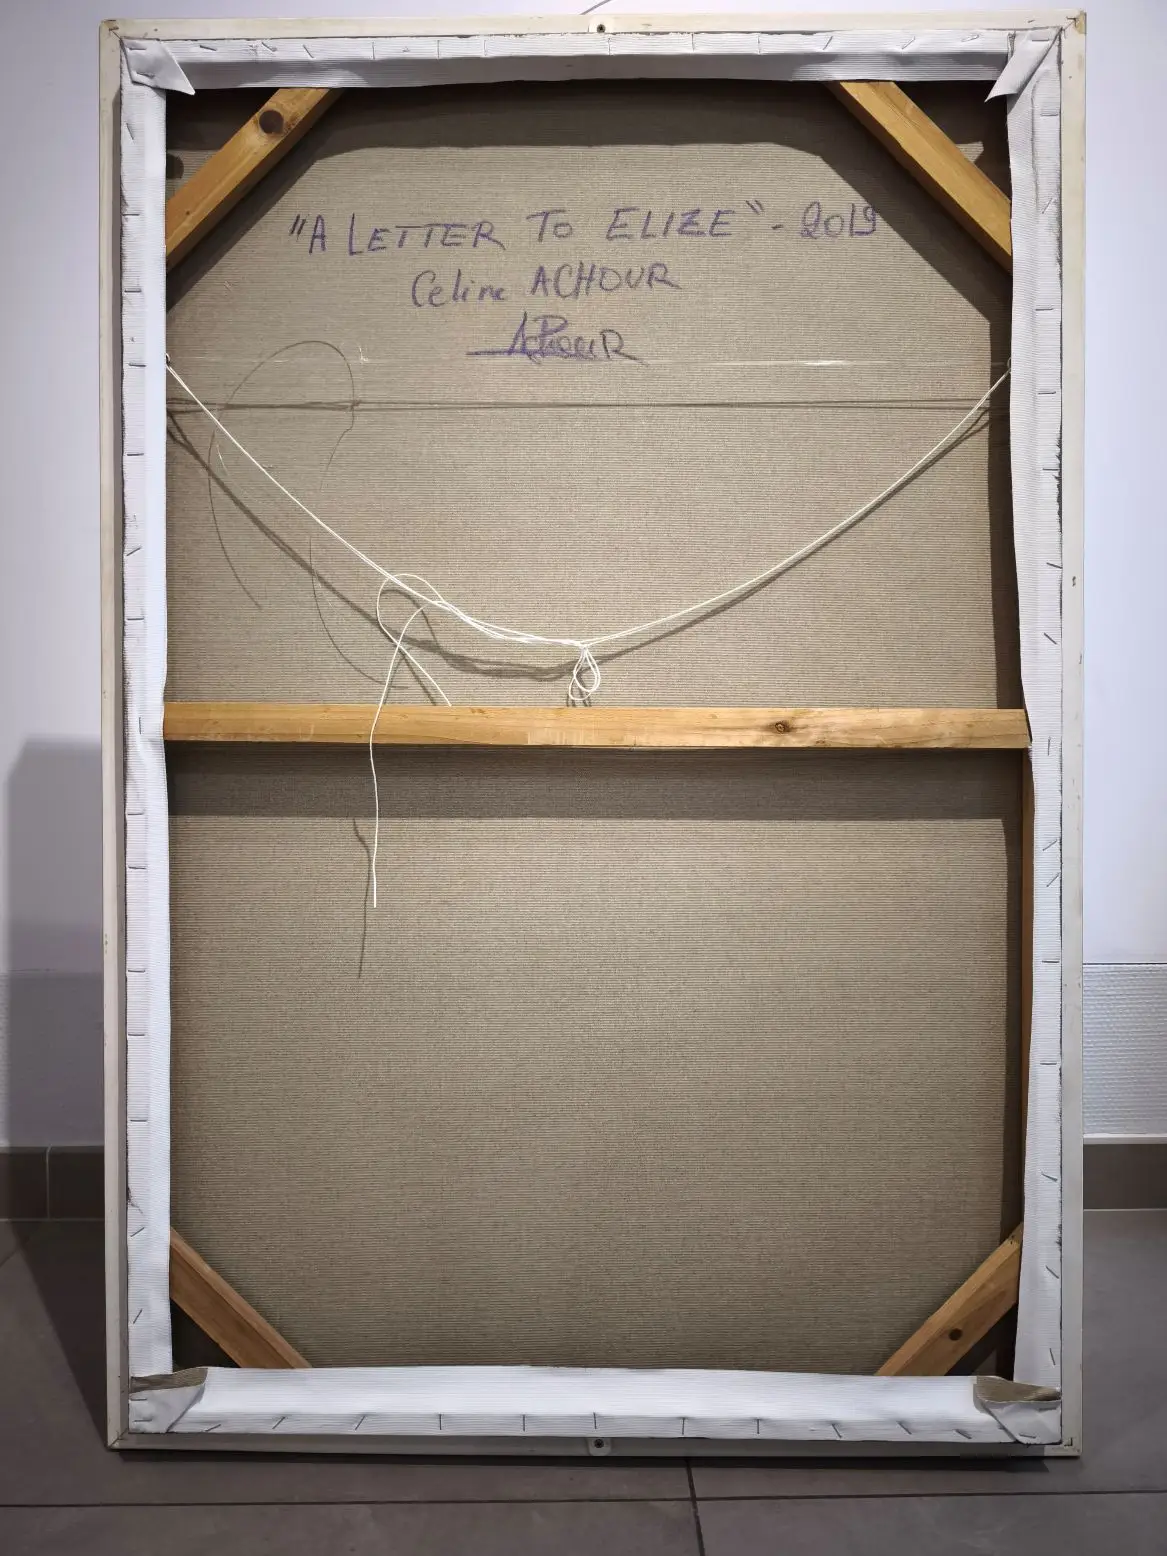 "A LETTER TO ELIZE" - 2019
Celine ACHOUR
AchouR